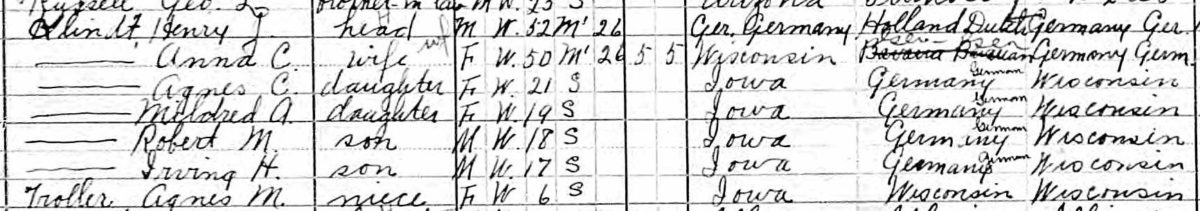 Russell Geo. brother-in-law M W. 23 S Arizona
Henry J. head M W. 52 M' 26 Ger. Germany Holland Dutch Germany Ger.
Anna C. wife F W. 50 M' 26 5 5 Wisconsin Germany Germ.
Agnes C. daughter F W. 21 S Iowa Germany German Wisconsin
Mildred A. daughter F W. 19 S Iowa Germany German Wisconsin
Robert M. son M W. 18 S Iowa Germany German Wisconsin
Irving H. son M W. 17 S Iowa Germany German Wisconsin
Troller Agnes M. niece F W 6 S Iowa Wisconsin Wisconsin